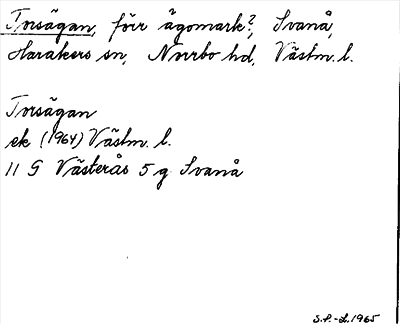 Torsägan, förr ägomark?, Svanå,
Harakers sn, Norrbo hd, Västm. l.
Torsägan
ek (1964) Västm. l.
11 G Västerås 5 g Svanå
S.P.-L. 1965